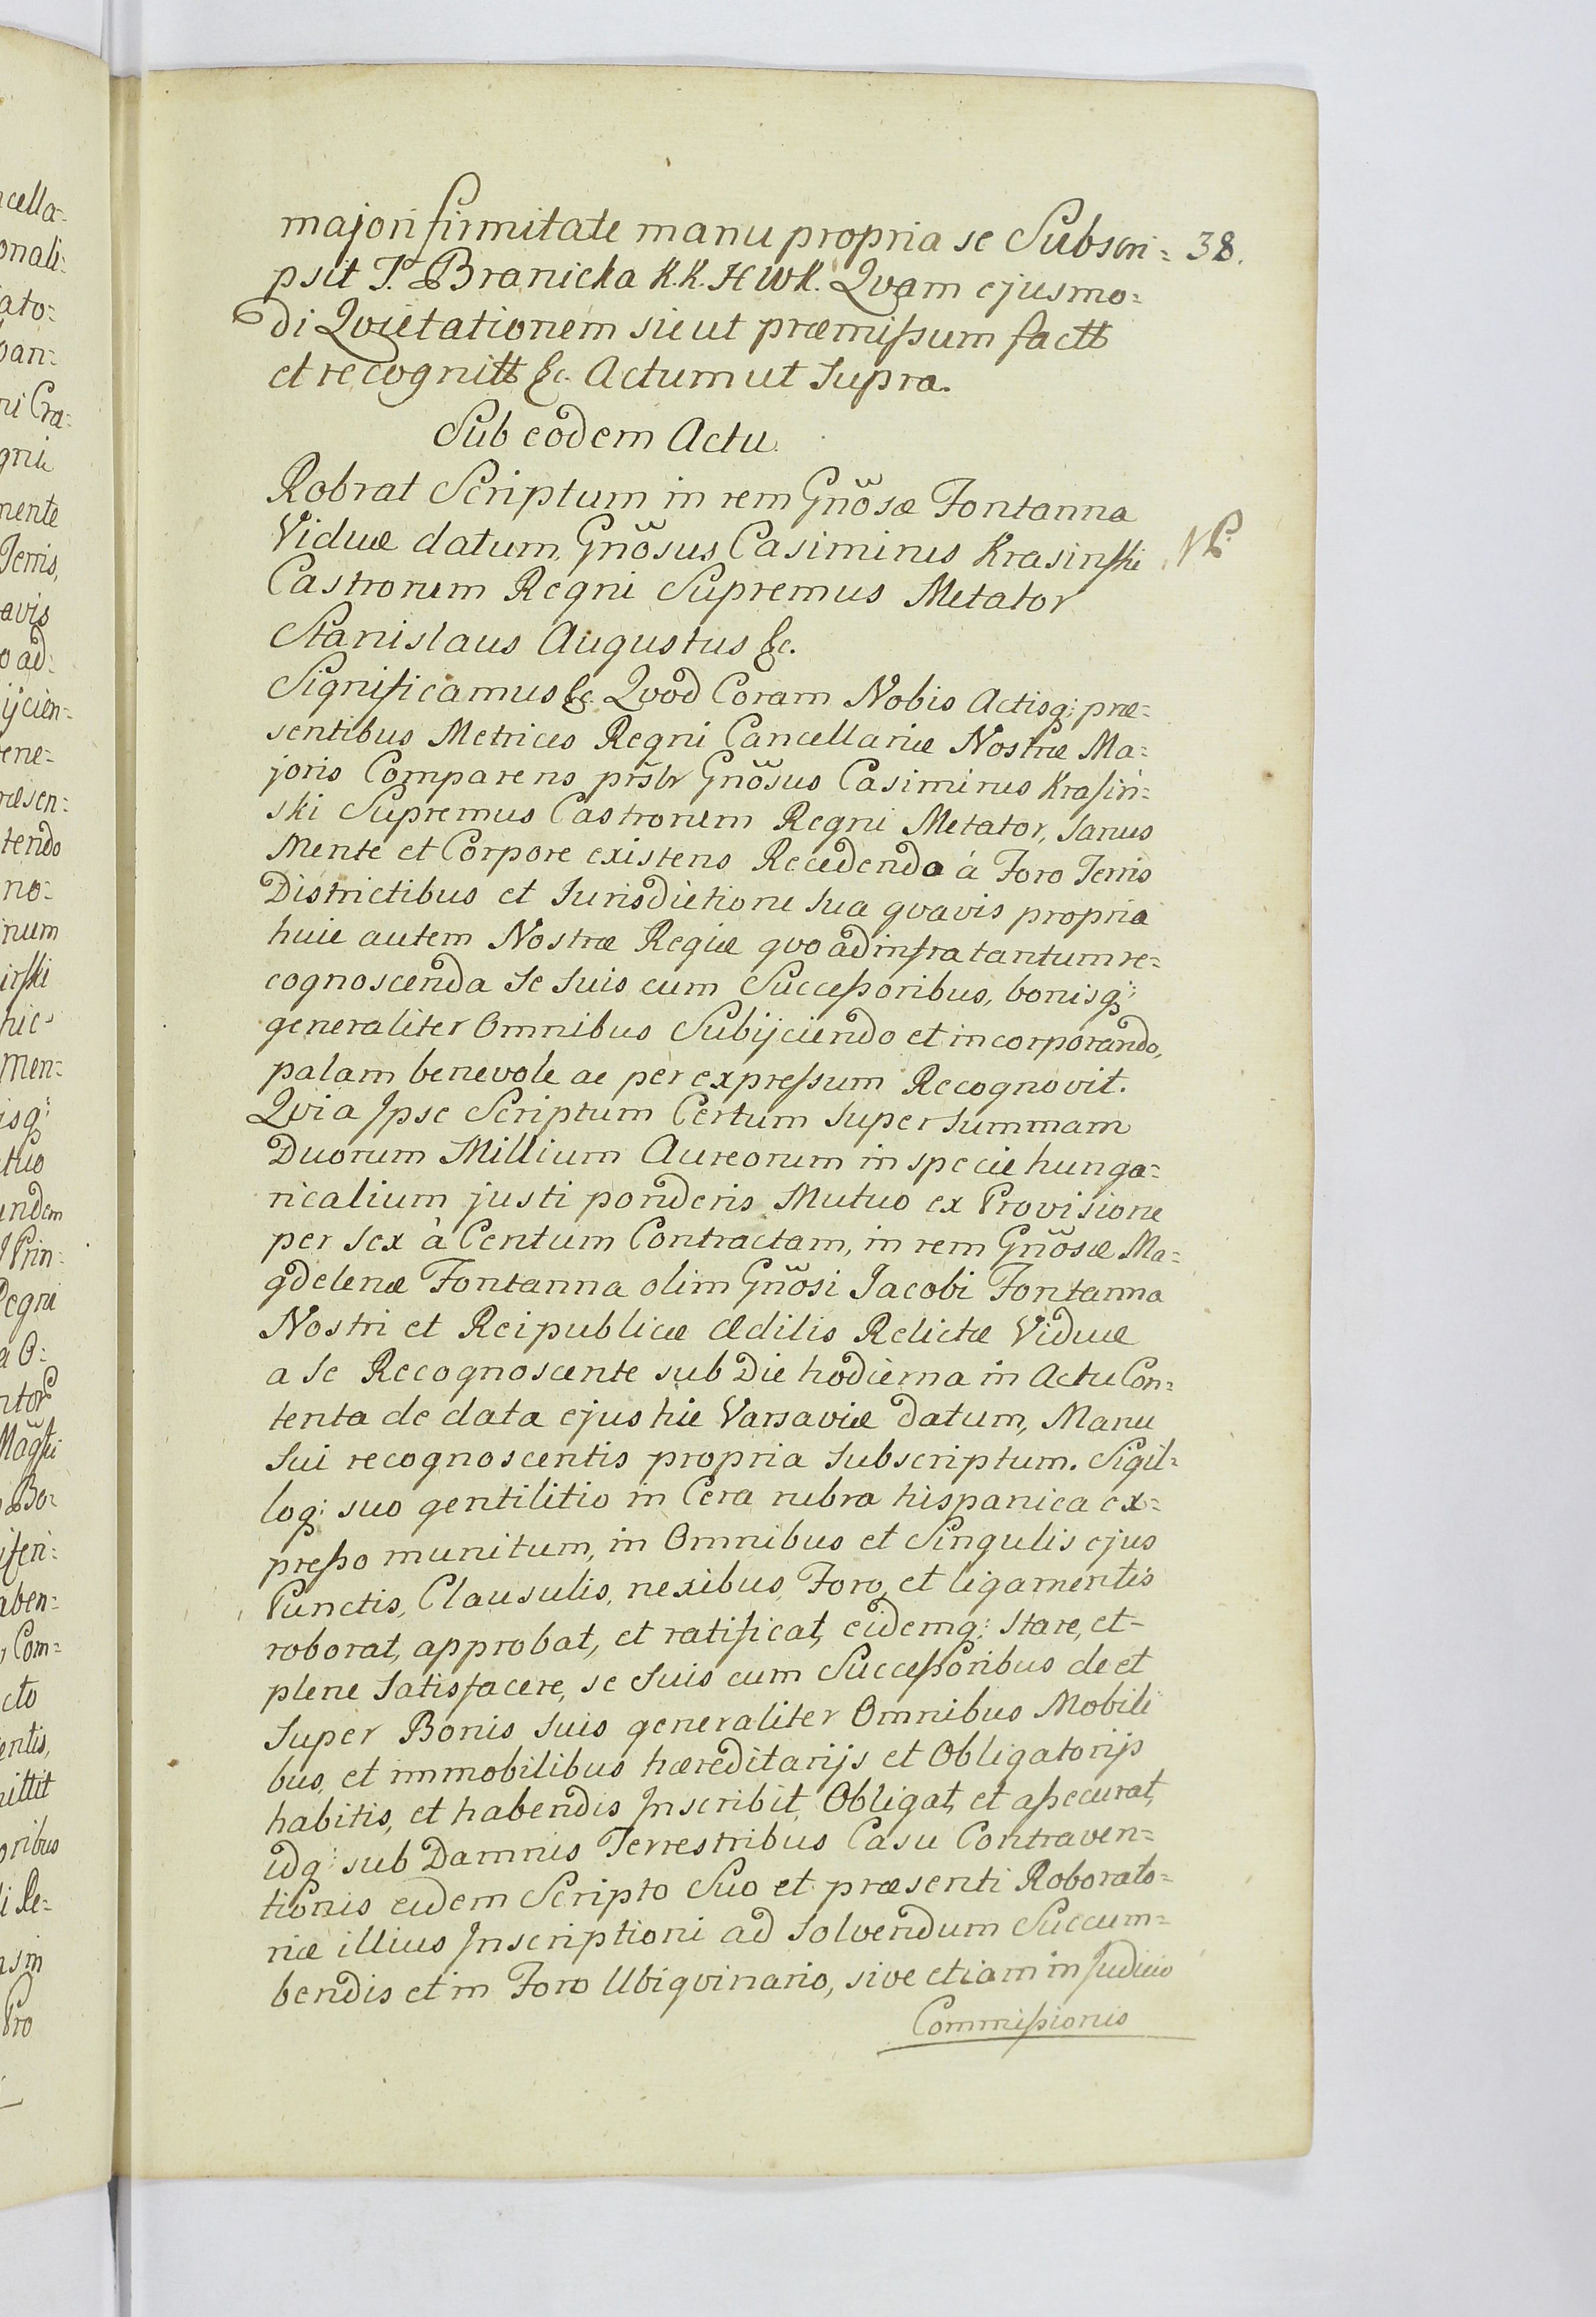 majori firmitate manu propria se Subscri= 38.
psit J. Branicka K. K. H W K. Qvam ejusmo=
di Qvietationem sicut præmissum factt
et recognitt &c. Actum ut Supra.
Sub eodem Actu.
Robrat Scriptum in rem Gnõsæ Fontanna
Viduæ datum, Gnõsus Casimirus Krasinski
Castrorum Regni Supremus Metator
Stanislaus Augustus &c.
Significamus &c. Qvod Coram Nobis Actisq; præ=
sentibus Metrices Regni Cancellariæ Nostræ Ma=
joris Comparens prsltr Gnõsus Casimirus Krasiń=
ski Supremus Castrorum Regni Metator, Sanus
Mente et Corpore existens Recedendo à Foro Terris
Districtibus et Jurisdictione Sua qvavis propria
huic autem Nostræ Regiæ qvo ad infra tantum re=
cognoscenda Se Suis cum Successoribus, bonisq;
generaliter Omnibus Subijciendo et incorporando,
palam benevole ac per expressum Recognovit.
Qvia Ipse Scriptum Certum Super Summam
Duorum Millium Aureorum in specie hunga=
ricalium justi ponderis Mutuo ex Provisione
per Sex à Centum Contractam, in rem Gnõsæ Ma=
gdelenæ Fontanna olim Gnõsi Jacobi Fontanna
Nostri et Reipublicæ Ædilis Relictæ Viduæ
a Se Recognoscente sub Die hodierna in Actu Con=
tenta de data ejus hic Varsaviæ datum, Manu
Sui recognoscentis propria Subscriptum. Sigil=
loq; suo gentilitio in Cera rubra hispanica ex=
presso munitum, in Omnibus et Singulis ejus
Punctis, Clausulis, nexibus, Foro, et ligamentis
roborat, approbat, et ratificat, eidemq; Stare, et=
plene Satisfacere, se Suis cum Successoribus de et
Super Bonis Suis generaliter Omnibus Mobili
bus, et immobilibus hæreditarijs et Obligatorijs
habitis, et habendis Inscribit, Obligat, et assecurat,
idq; sub Damnis Terrestribus Casu Contraven=
tionis eidem Scripto Suo et præsenti Roborato=
riæ illius Inscriptioni ad Solvendum Succum=
bendis et in Foro Ubiqvinario, sive etiam in Judicio
Commissionis